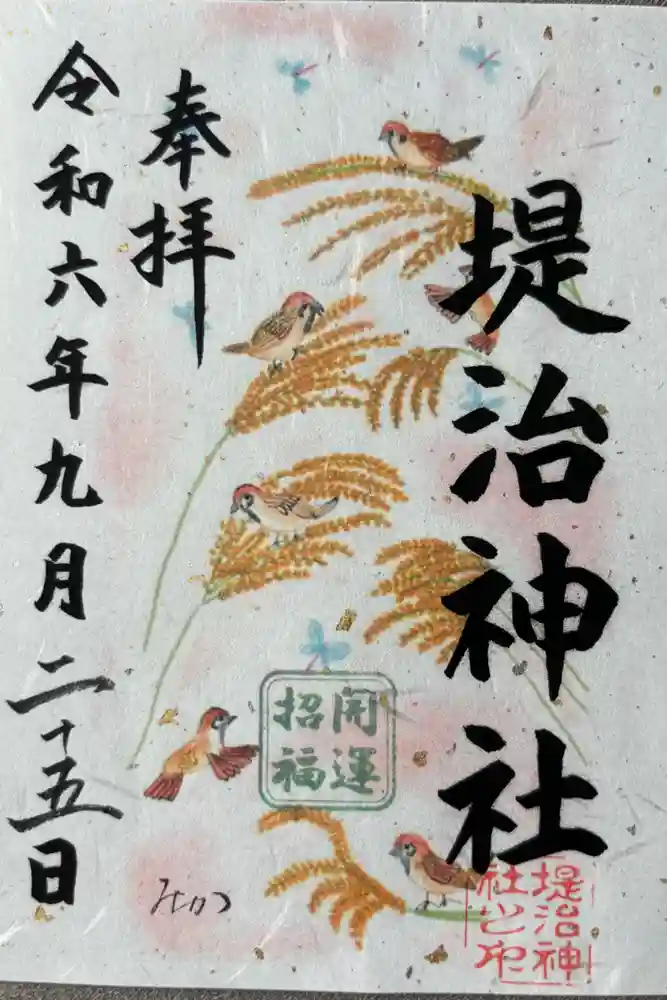 堤治神社
奉拝
令和六年九月二十五日
開運
招福
堤治神
社之印
みか